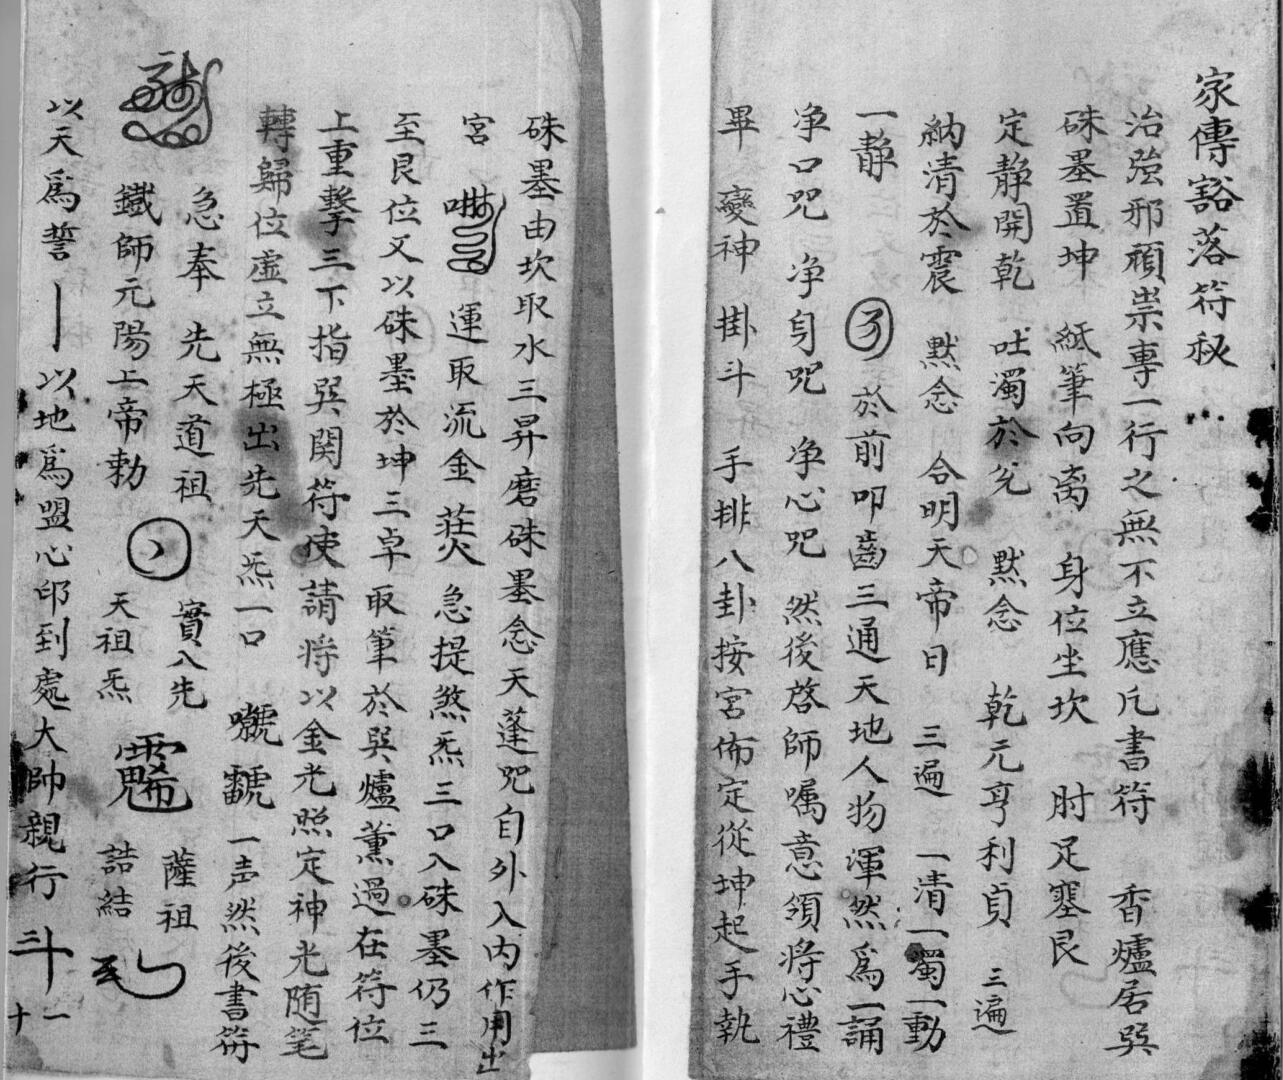 家傳豁落符秘
治強邪頑祟專一行之無不立應凡書符 香爐居巽
硃墨置坤 紙筆向离 身位坐坎 肘足塞艮
定静開乾 吐濁於兌 默念 乾元亨利貞 三遍
納清於震 默念 合明天帝日 三遍 一清一濁一動
一静 於前叩齒三通天地人物渾然爲一誦
净口咒 净身咒 净心咒 然後啓師嘱意領將心禮
畢 變神 掛斗 手排八卦按宮佈定從坤起手執
硃墨由坎取水三昇磨硃墨念天蓬咒自外入内作用出
宮 運取流金 急提煞炁三口入硃墨仍三
至艮位又以硃墨於坤三卓取筆於巽爐薰過在符位
上重擊三下指巽関符使請将以金光照定神光随笔
轉歸位虛立無極出先天炁一口 一声然後書符
急奉 先天道祖 實八先 薩祖
鐵師元陽上帝勅 天祖炁 誥結
以天爲誓 以地爲盟心印到處大帥親行
十一